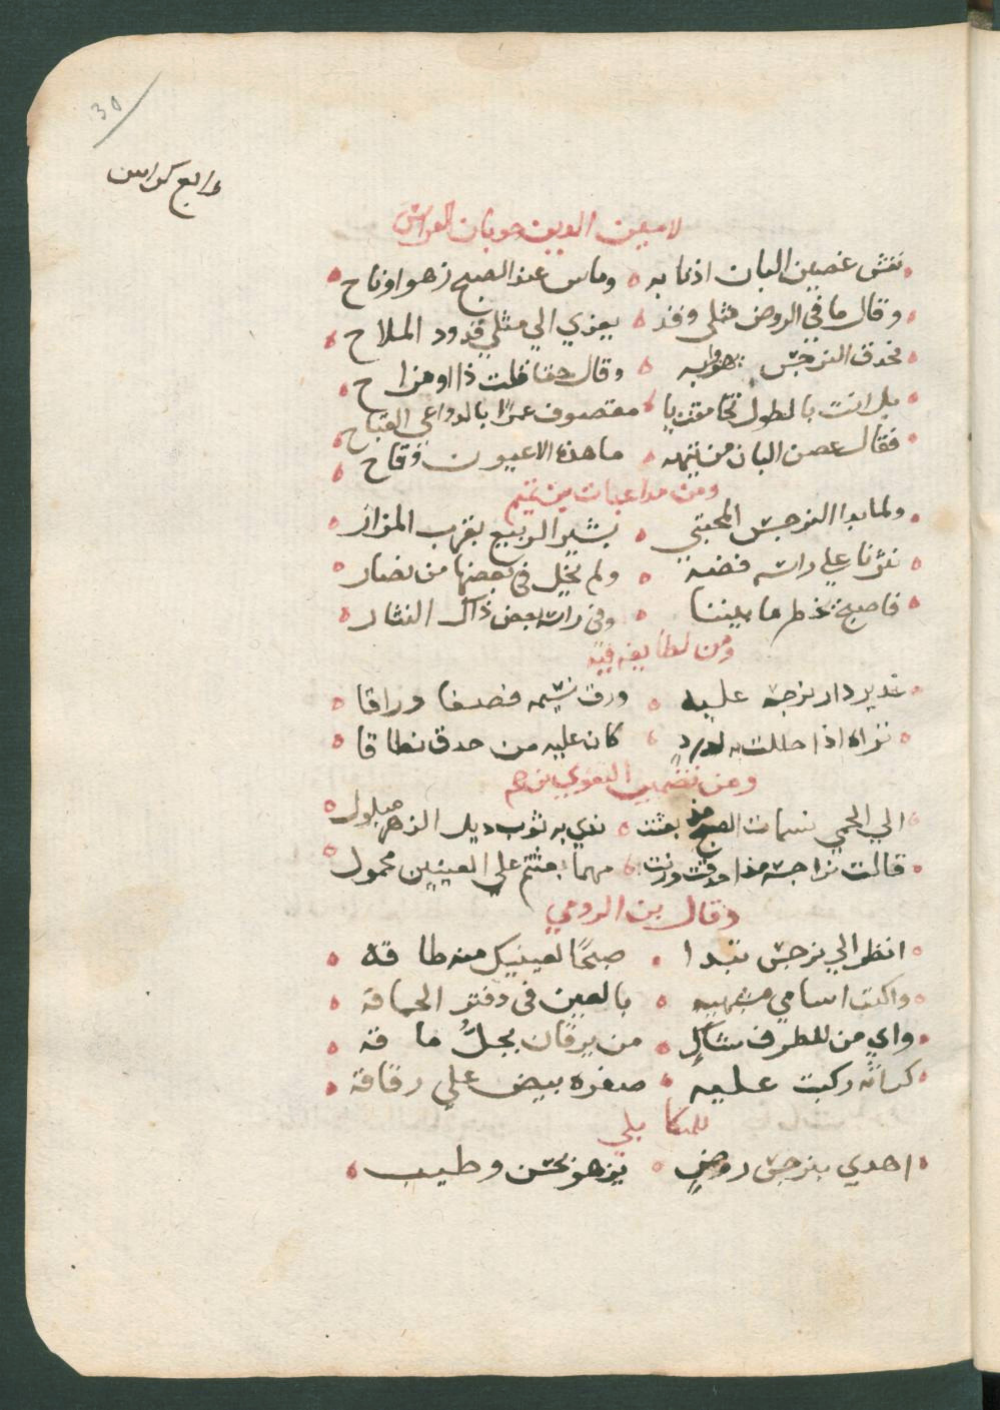 30
رابع كراس
لامين الدين جوبان القواس
نفش غصين البان اذنابه ه وماس عند الصبح زهوا وفاح
وقال ما في الروض مثلي وقد ه يعزي الي مثلي قدود الملاح
فحدق النرجس يهزوا به ه وقال حقا قلت ذا او مزاح
بل انت بالطول تحامقت يا ه مقصوف عمرا بالدواعي القباح
فقال غصن البان من تيهه ه ما هذه الا عيون وقاح
ومن مداعبات بن تميم
ولما بدا النرجس المجتبي ه بشير الربيع بقرب المزار
نثرنا علي راسه فضه ه ولم نخل في بعضها من نضار
فاصبح يخطر ما بيننا ه وفي راسه بعض ذاك النثار
ومن لطايفه فيه
غدير دار نرجسه عليه ه ورق نسيمه فصفا وراقا
تراه اذا حللت به لورد ه كان عليه من حدق نطاقا
ومن تضمين
الي الحمي نسمات الصبح مذ بعثت ه ندي به ثوب ذيل الزهر مبلول
قالت نراجسه مذا حدقت ورنت ه مهما بعثتم علي العينين محمول
وقال بن الرومي
انظر الي نرجس تبدا ه صبحًا لعينيك منه طاقه
واكتب اسامي مشبهيه ه بالعين في دفتر الحماقة
واي من للطرف شكل ه من يرقان بجلُ ماقه
كراثه ركبت عليه ه صفره بيض علي رقاقة
للمكا بلي
اهدي بنرجس روض ه يزهو بحسن وطيب